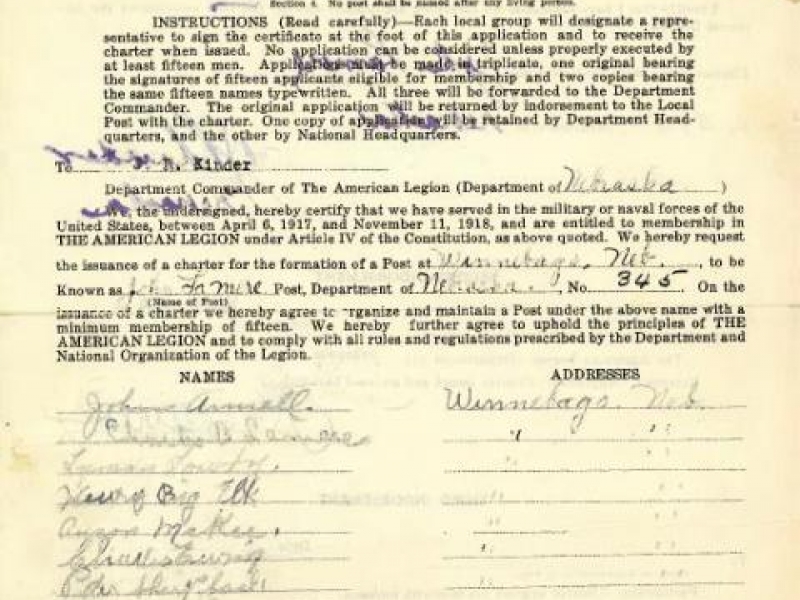 Section 4. No post shall be named after any living person.
INSTRUCTIONS (Read carefully)—Each local group will designate a repre-
sentative to sign the certificate at the foot of this application and to receive the
charter when issued. No application can be considered unless properly executed by
at least fifteen men. Application must be made in triplicate, one original bearing
the signatures of fifteen applicants eligible for membership and two copies bearing
the same fifteen names typewritten. All three will be forwarded to the Department
Commander. The original application will be returned by indorsement to the Local
Post with the charter. One copy of application will be retained by Department Head-
quarters, and the other by National Headquarters.
To R. Kinder
Department Commander of The American Legion (Department of Nebraska)
We, the undersigned, hereby certify that we have served in the military or naval forces of the
United States, between April 6, 1917, and November 11, 1918, and are entitled to membership in
THE AMERICAN LEGION under Article IV of the Constitution, as above quoted. We hereby request
the issuance of a charter for the formation of a Post at Winnebago, Neb., to be
Known as John Post, Department of Nebraska, No. 345. On the
(Name of Post)
issuance of a charter we hereby agree to organize and maintain a Post under the above name with a
minimum membership of fifteen. We hereby further agree to uphold the principles of THE
AMERICAN LEGION and to comply with all rules and regulations prescribed by the Department and
National Organization of the Legion.
NAMES ADDRESSES
John Winnebago, Neb.
" "
Lyman " "
Henry Big Elk " "
McKee "
" "
Peter " "